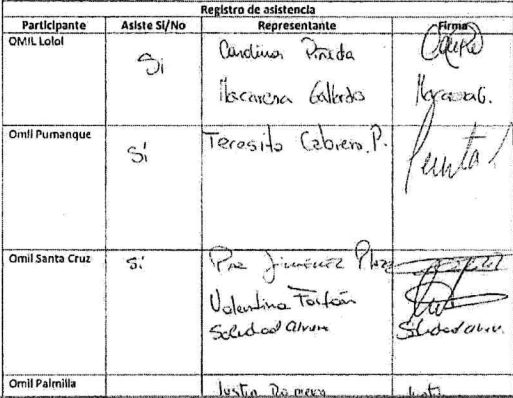 Registro de asistencia
Participante Asiste Sí/No Representante Firma
OMIL Lolol Si Carolina Pineda
Macarena Gallardo Macarena G.
Omil Pumanque Sí Teresita Cabrera P.
Omil Santa Cruz Si Paz Jimenez
Valentina Farfán
Soledad Soledad
Omil Palmilla Justin Romero